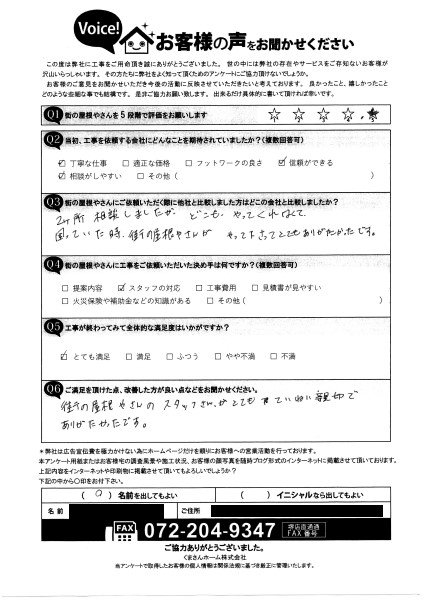 Voice!
お客様の声をお聞かせください
この度は弊社に工事をご用命頂き誠にありがとうございました。 世の中には弊社の存在やサービスをご存知ないお客様が
沢山いらっしゃいます。 その方たちに弊社をよく知って頂くためのアンケートにご協力頂けないでしょうか。
お客様のご意見をお聞かせいただき今後の活動に反映させていただきたいと考えております。 良かったこと、嬉しかったこと
どのような些細な事でも結構です。 是非ご協力お願い致します。 出来るだけ具体的に書いて頂ければ幸いです。
Q1 街の屋根やさんを5段階で評価をお願いします ☆ ☆ ☆ ☆ ★
Q2 当初、工事を依頼する会社にどんなことを期待されていましたか?(複数回答可)
☑ 丁寧な仕事 □ 適正な価格 □ フットワークの良さ ☑ 信頼ができる
☑ 相談がしやすい □ その他 ( )
Q3 街の屋根やさんにご依頼いただく際に他社と比較しました方はどこの会社と比較しましたか?
2ヶ所 相談しましたが、どこも、やってくれなくて、
困っていた時、街の屋根やさんが やって下さってとてもありがたかったです。
Q4 街の屋根やさんに工事をご依頼いただいた決め手は何ですか?(複数回答可)
□ 提案内容 ☑ スタッフの対応 □ 工事費用 □ 見積書が見やすい
□ 火災保険や補助金などの知識がある □ その他 ( )
Q5 工事が終わってみて全体的な満足度はいかがですか?
☑ とても満足 □ 満足 □ ふつう □ やや不満 □ 不満
Q6 ご満足を頂けた点、改善した方が良い点などをお聞かせください。
街の屋根やさんの スタッフさんがとても ていねい 親切で
ありがたかったです。
*弊社は広告宣伝費を極力かけない為にホームページだけを頼りにお客様への営業活動を行っております。
本アンケート用紙またはお客様宅の調査風景や施工状況、お客様の顔写真を随時ブログ形式のインターネットに掲載させて頂いております。
上記内容をインターネットや印刷物に掲載させて頂いてもよろしいでしょうか?
下記の中から〇印をお付け下さい。
( ○ ) 名前を出してもよい ( ) イニシャルなら出してもよい
名 前 ご住所
FAX 072-204-9347 堺店直通
FAX番号
ご協力ありがとうございました。
くまさんホーム株式会社
当アンケートで取得したお客様の個人情報は関係法規に基づき厳正に管理いたします。